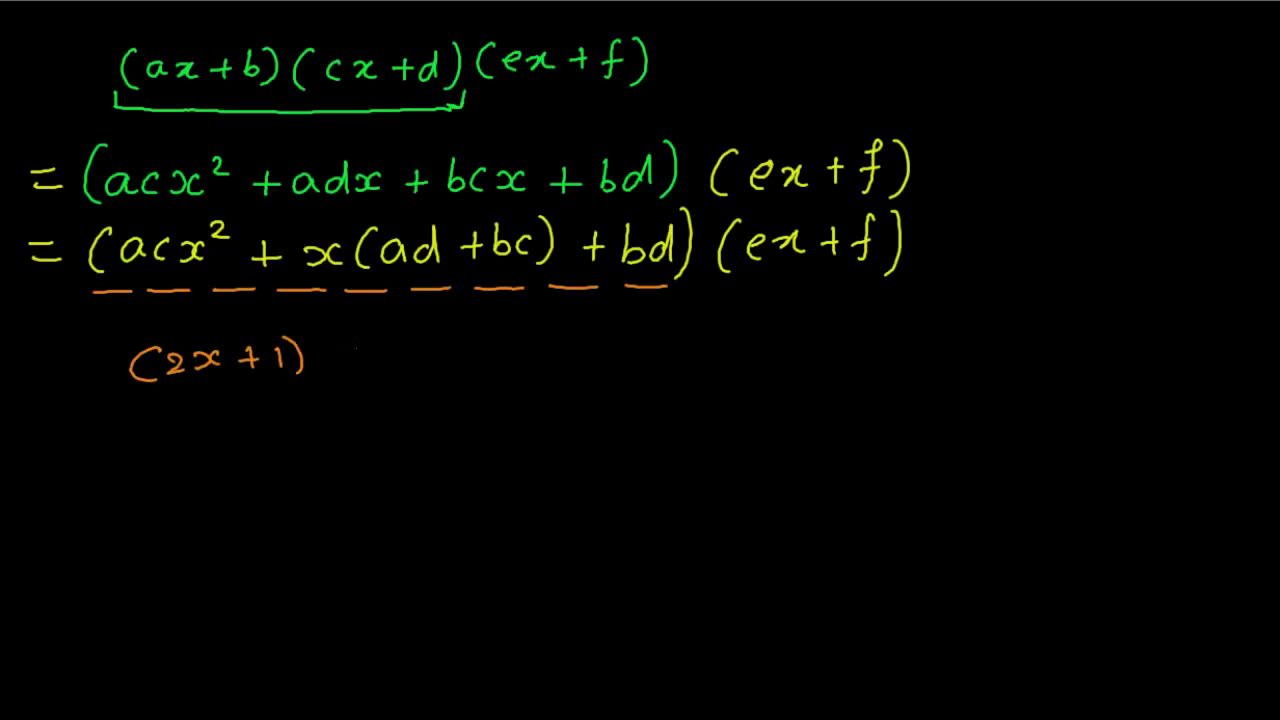 (ax+b)(cx+d)(ex+f)
= (acx² + adx + bcx + bd) (ex+f)
= (acx² + x(ad+bc) + bd) (ex+f)
(2x+1)